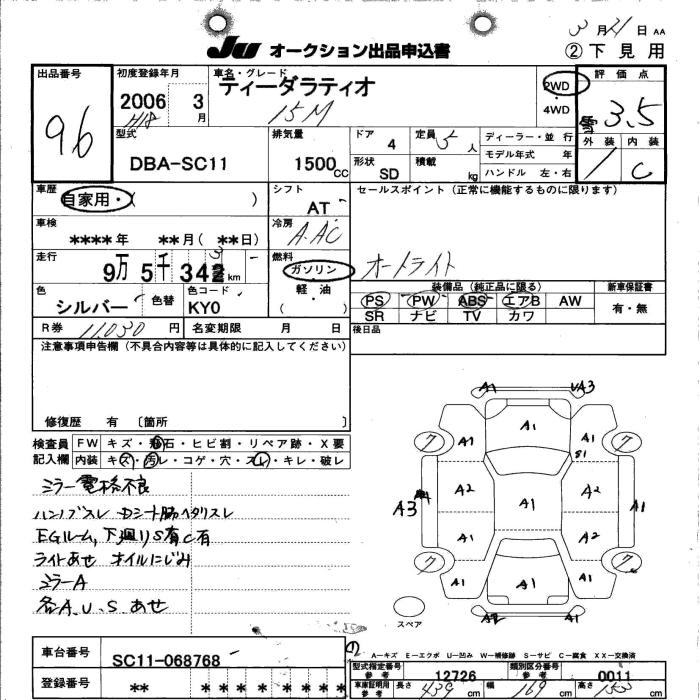 3月21日 AA
JU オークション出品申込書
②下見用
出品番号
96
初度登録年月
2006 3月
H18
車名・グレード
ティーダラティオ
15M
2WD
・
4WD
評価点
3.5
外装 内装
C
型式
DBA-SC11
排気量
1500cc
ドア 4
形状 SD
定員 5人
積載 kg
ディーラー・並行
モデル年式 年
ハンドル 左・右
車歴
自家用・( )
シフト
AT
セールスポイント(正常に機能するものに限ります)
オートライト
車検
****年 **月(**日)
冷房
A.AC
走行
9万5千34 km
燃料
ガソリン
軽・油
( )
色
シルバー
色替
色コード
KY0
装備品(純正品に限る)
PS PW ABS エアB AW
SR ナビ TV カワ
新車保証書
有・無
R券 11030円
名変期限 月 日
後日品
注意事項申告欄(不具合内容等は具体的に記入してください)
修復歴 有 〔箇所 〕
検査員
記入欄
FW キズ・飛石・ヒビ割・リペア跡・X要
内装 キズ・汚レ・コゲ・穴・スレ・キレ・破レ
ミラー電格不良
ハンドブスレ Dシート筋ヘタリスレ
EGルーム,下廻りS有C有
ライトあせ オイルにじみ
ミラーA
各A.U.Sあせ
A1 A3
A1
7 A1 A1 7
S1
A2 A2
A3 A1 A1
A1 A2
7 A1 A1 A1 7
A2 A1
スペア
A-キズ E-エクボ U-凹み W-補修跡 S-サビ C-腐食 XX-交換済
車台番号
SC11-068768
登録番号
** * * * * * * *
型式指定番号
参考
12726
類別区分番号
参考
0011
車庫証明用
参考
長さ 439cm 幅 169cm 高さ 153cm